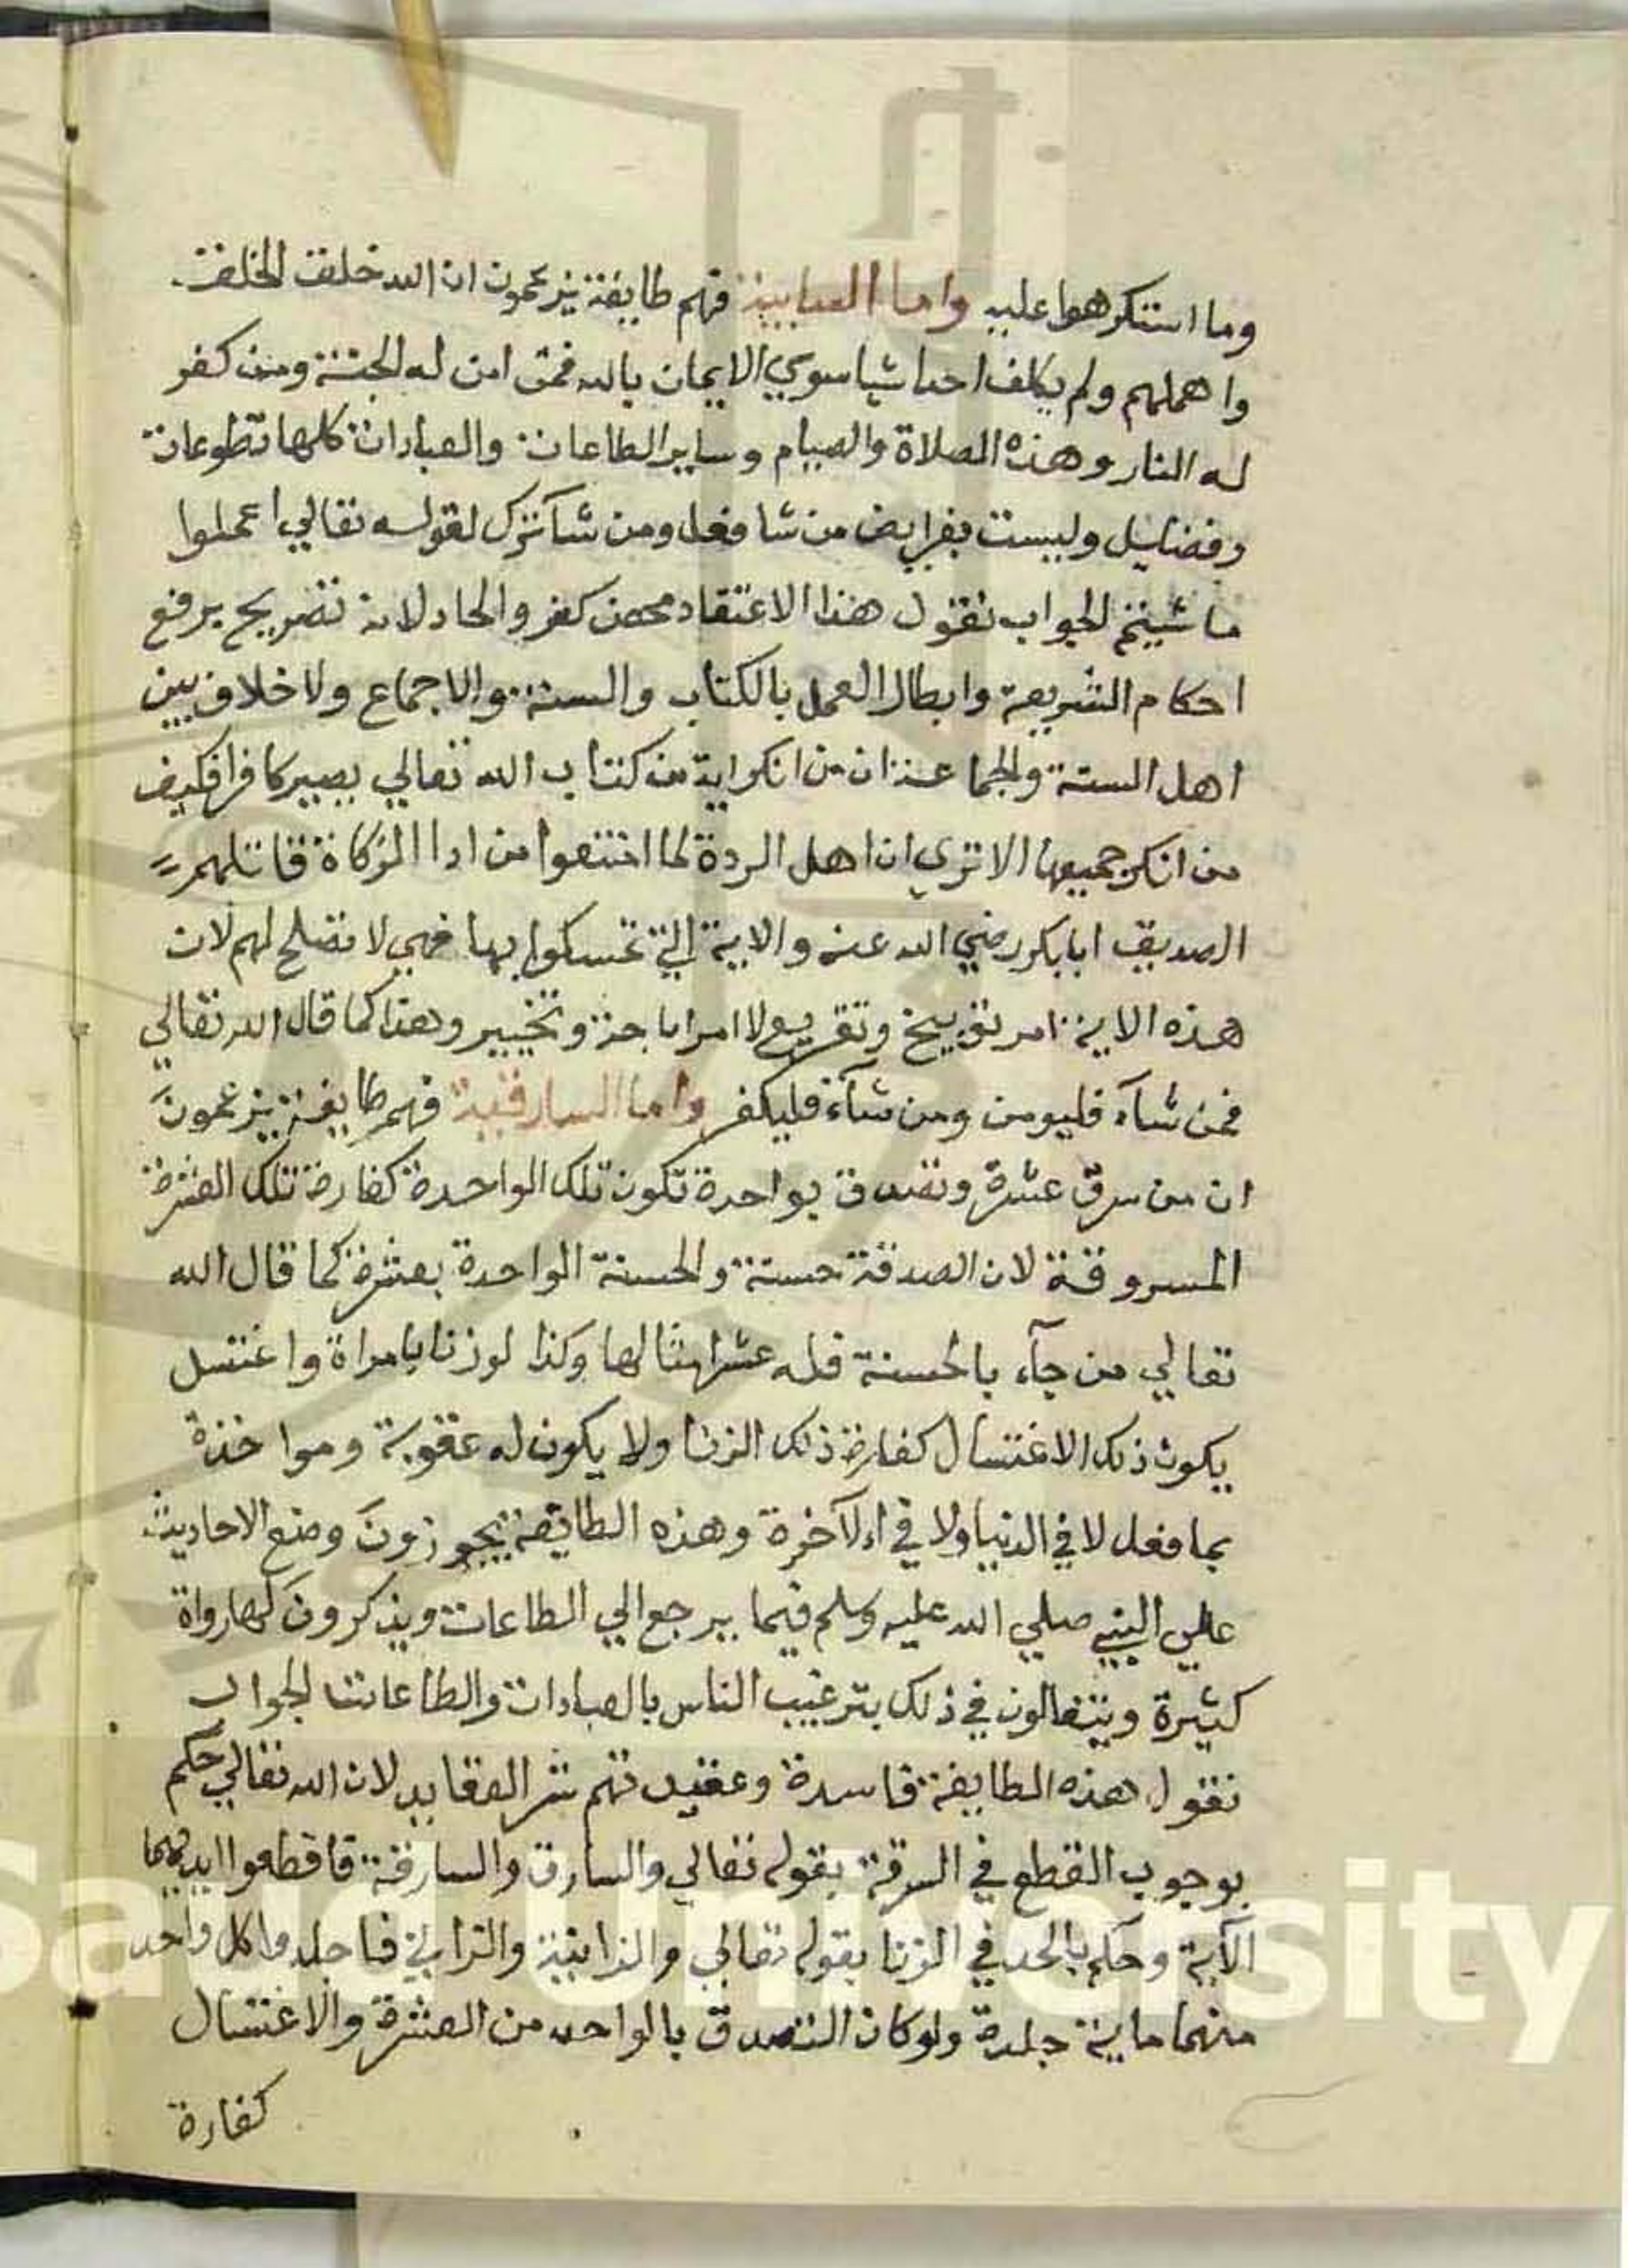 وما استكرهوا عليه واما السابية فهم طايفة يزعمون ان الله خلق الخلق
واهملهم ولم يكلف احدا شيا سوي الايمان بالله فمن امن له الجنة ومن كفر
له النار وهذه الصلاة والصيام وساير الطاعات والعبادات كلها تطوعات
وفضايل وليست بفرايض من شا فعل ومن شآ ترك لقوله تعالي اعملوا
ما شيتم الجواب نقول هذا الاعتقاد محض كفر والحاد لانه تصريح برفع
احكام الشريعة وابطال العمل بالكتاب والسنة والاجماع ولا خلاف بين
اهل السنة والجماعة ان من انكر اية من كتاب الله تعالي يصير كافرا فكيف
من انكر جميعها الا تري ان اهل الردة لما امتنعوا من ادا الزكاة قاتلهم
الصديق ابا بكر رضي الله عنه والاية التي تمسكوا بها فهي لا تصلح لهم لان
هذه الاية امر توبيخ وتقريع لا امر اباحة وتخيير وهذا كما قال الله تعالي
فمن شآء فليومن ومن شآء فليكفر واما السارقية فهم طايفة يزعمون
ان من سرق عشرة وتصدق بواحدة تكون تلك الواحدة كفارة تلك العشرة
المسروقة لان الصدقة حسنة والحسنة الواحدة بعشرة كما قال الله
تعالي من جآء بالحسنة فله عشر امثالها وكذا لو زنا بامراة واغتسل
يكون ذلك الاغتسال كفارة ذلك الزنا ولا يكون له عقوبة ومواخذة
بما فعل لا في الدنيا ولا في الآخرة وهذه الطايفة يجوزون وضع الاحاديث
علي النبي صلي الله عليه وسلم فيما يرجع الي الطاعات ويذكرون لها رواة
كثيرة ويتغالون في ذلك بترغيب الناس بالعبادات والطاعات الجواب
نقول هذه الطايفة فاسدة وعقيدتهم شر العقايد لان الله تعالي حكم
بوجوب القطع في السرقة بقوله تعالي والسارق والسارقة فاقطعوا ايديهما
الآية وحكم بالحد في الزنا بقوله تعالي والزانية والزاني فاجلدوا كل واحد
منهما ماية جلدة ولو كان التصدق بالواحد من العشرة والاغتسال
كفارة
Saud University